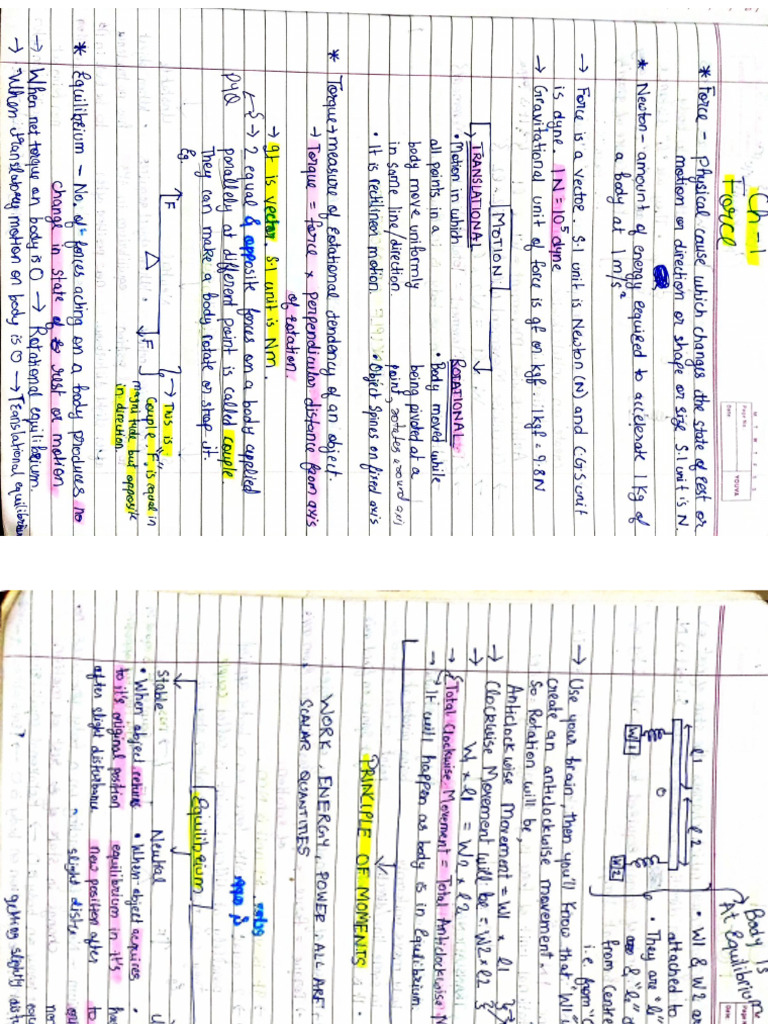 Ch-1
Force
* Force - physical cause which changes the state of rest or
motion or direction or shape or size. S.I unit is N
* Newton - amount of energy required to accelerate 1 kg of
a body at 1 m/s²
→ Force is a vector. S.I unit is Newton (N) and C.G.S unit
is dyne. 1N = 10⁵ dyne
→ Gravitational unit of force is gf or kgf. 1kgf = 9.8N
MOTION
TRANSLATIONAL
• Motion in which
all points in a
body move uniformly
in same line/direction.
• It is rectilinear motion.
ROTATIONAL
• Body moved while
being pivoted at a
point, rotates around axis
• Object spins on fixed axis
* Torque → measure of rotational tendency of an object.
→ Torque = force × perpendicular distance from axis
of rotation.
→ It is vector. S.I unit is Nm.
→ 2 equal & opposite forces on a body applied
PYQ
parallely at different point is called couple.
They can make a body rotate or stop it.
Eg.
F
F
→ This is
Couple. "F" is equal in
magnitude but opposite
in direction
* Equilibrium - No. of forces acting on a body produces no
change in state of rest or motion
→ When net torque on body is 0 → Rotational equilibrium.
→ When translatory motion on body is 0 → Translational equilibrium
YOUVA
Page No.
Date
Body is
At Equilibrium
l1
l2
O
W1
W2
• W1 & W2 are
attached to
• They are "l1"
& "l2"
from Centre
i.e. from "O"
→ Use your brain, then you'll know that "W1"
create an anticlockwise movement.
so Rotation will be,
→ Anticlockwise Movement = W1 × l1
→ Clockwise Movement will be = W2 × l2
→ W1 × l1 = W2 × l2
→ Total Clockwise Movement = Total Anticlockwise M
→ It will happen as body is in Equilibrium.
PRINCIPLE OF MOMENTS
WORK, ENERGY, POWER, ALL ARE
SCALAR QUANTITIES
Equilibrium
Stable
• When object returns
to it's original position
after slight disturbance
Neutral
• When object acquires
equilibrium in it's
new position after
slight distu
getting slightly dist